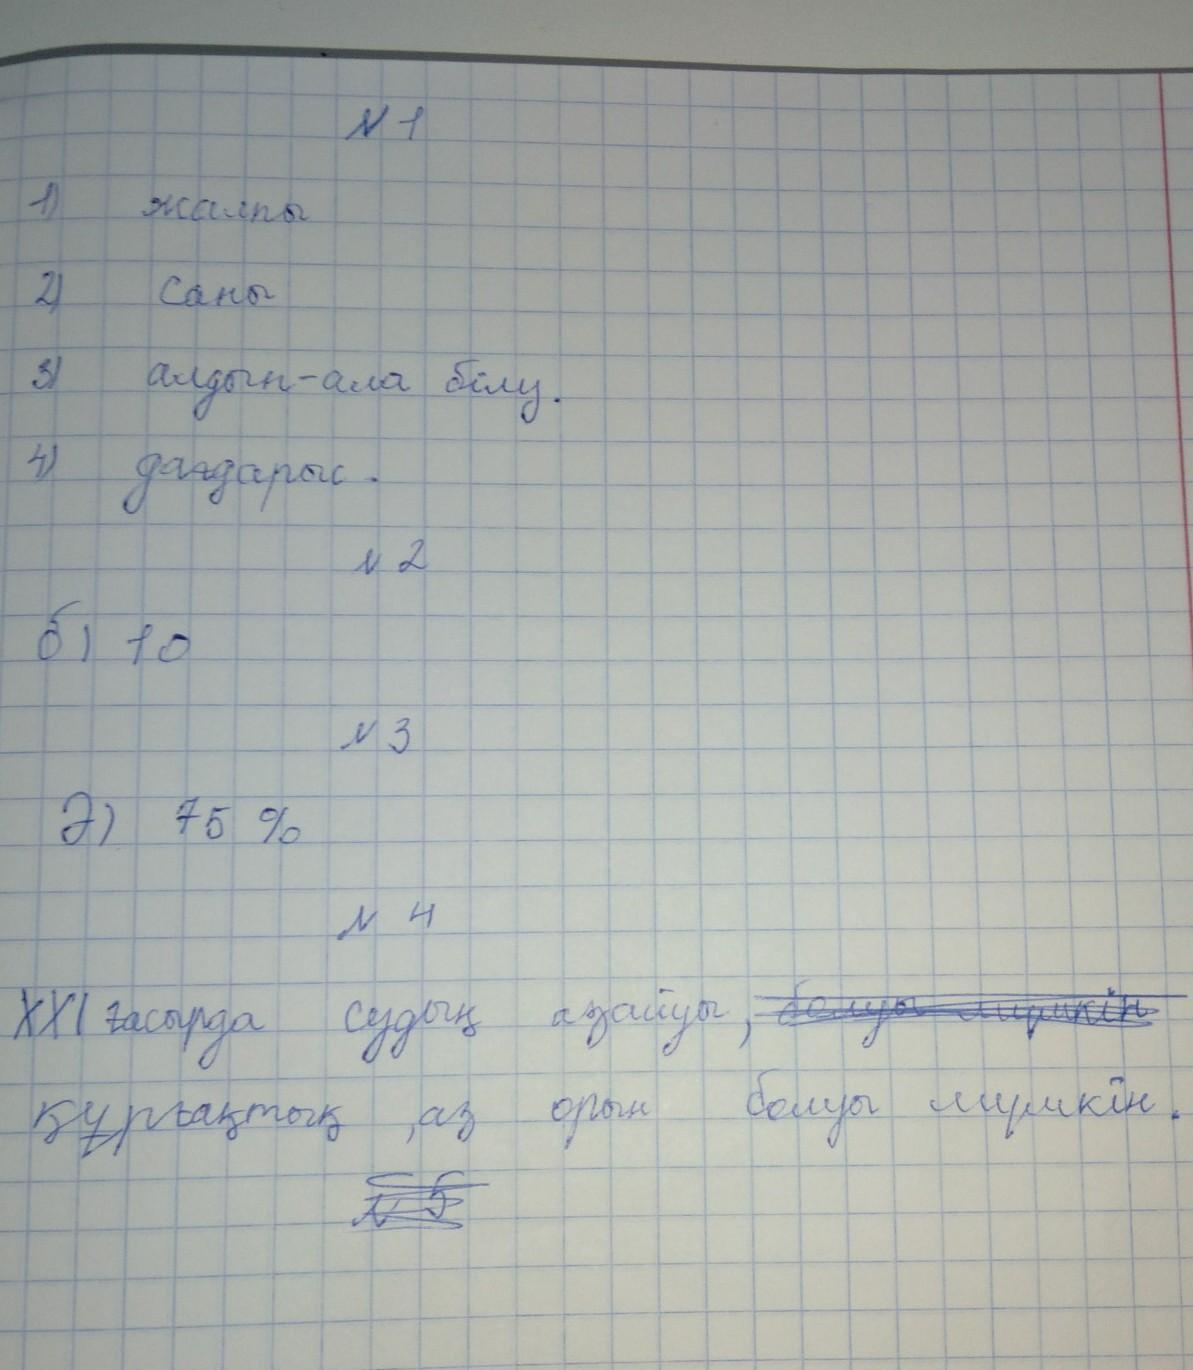 N 1
1) жалпы
2) Саны
3) алдын-ала білу.
4) дағдарыс.
N 2
б) 10
N 3
Ә) 75 %
N 4
XXI ғасырда судың азайуы, болуы мүмкін
құрғақтық, аз орын болуы мүмкін.
N 5